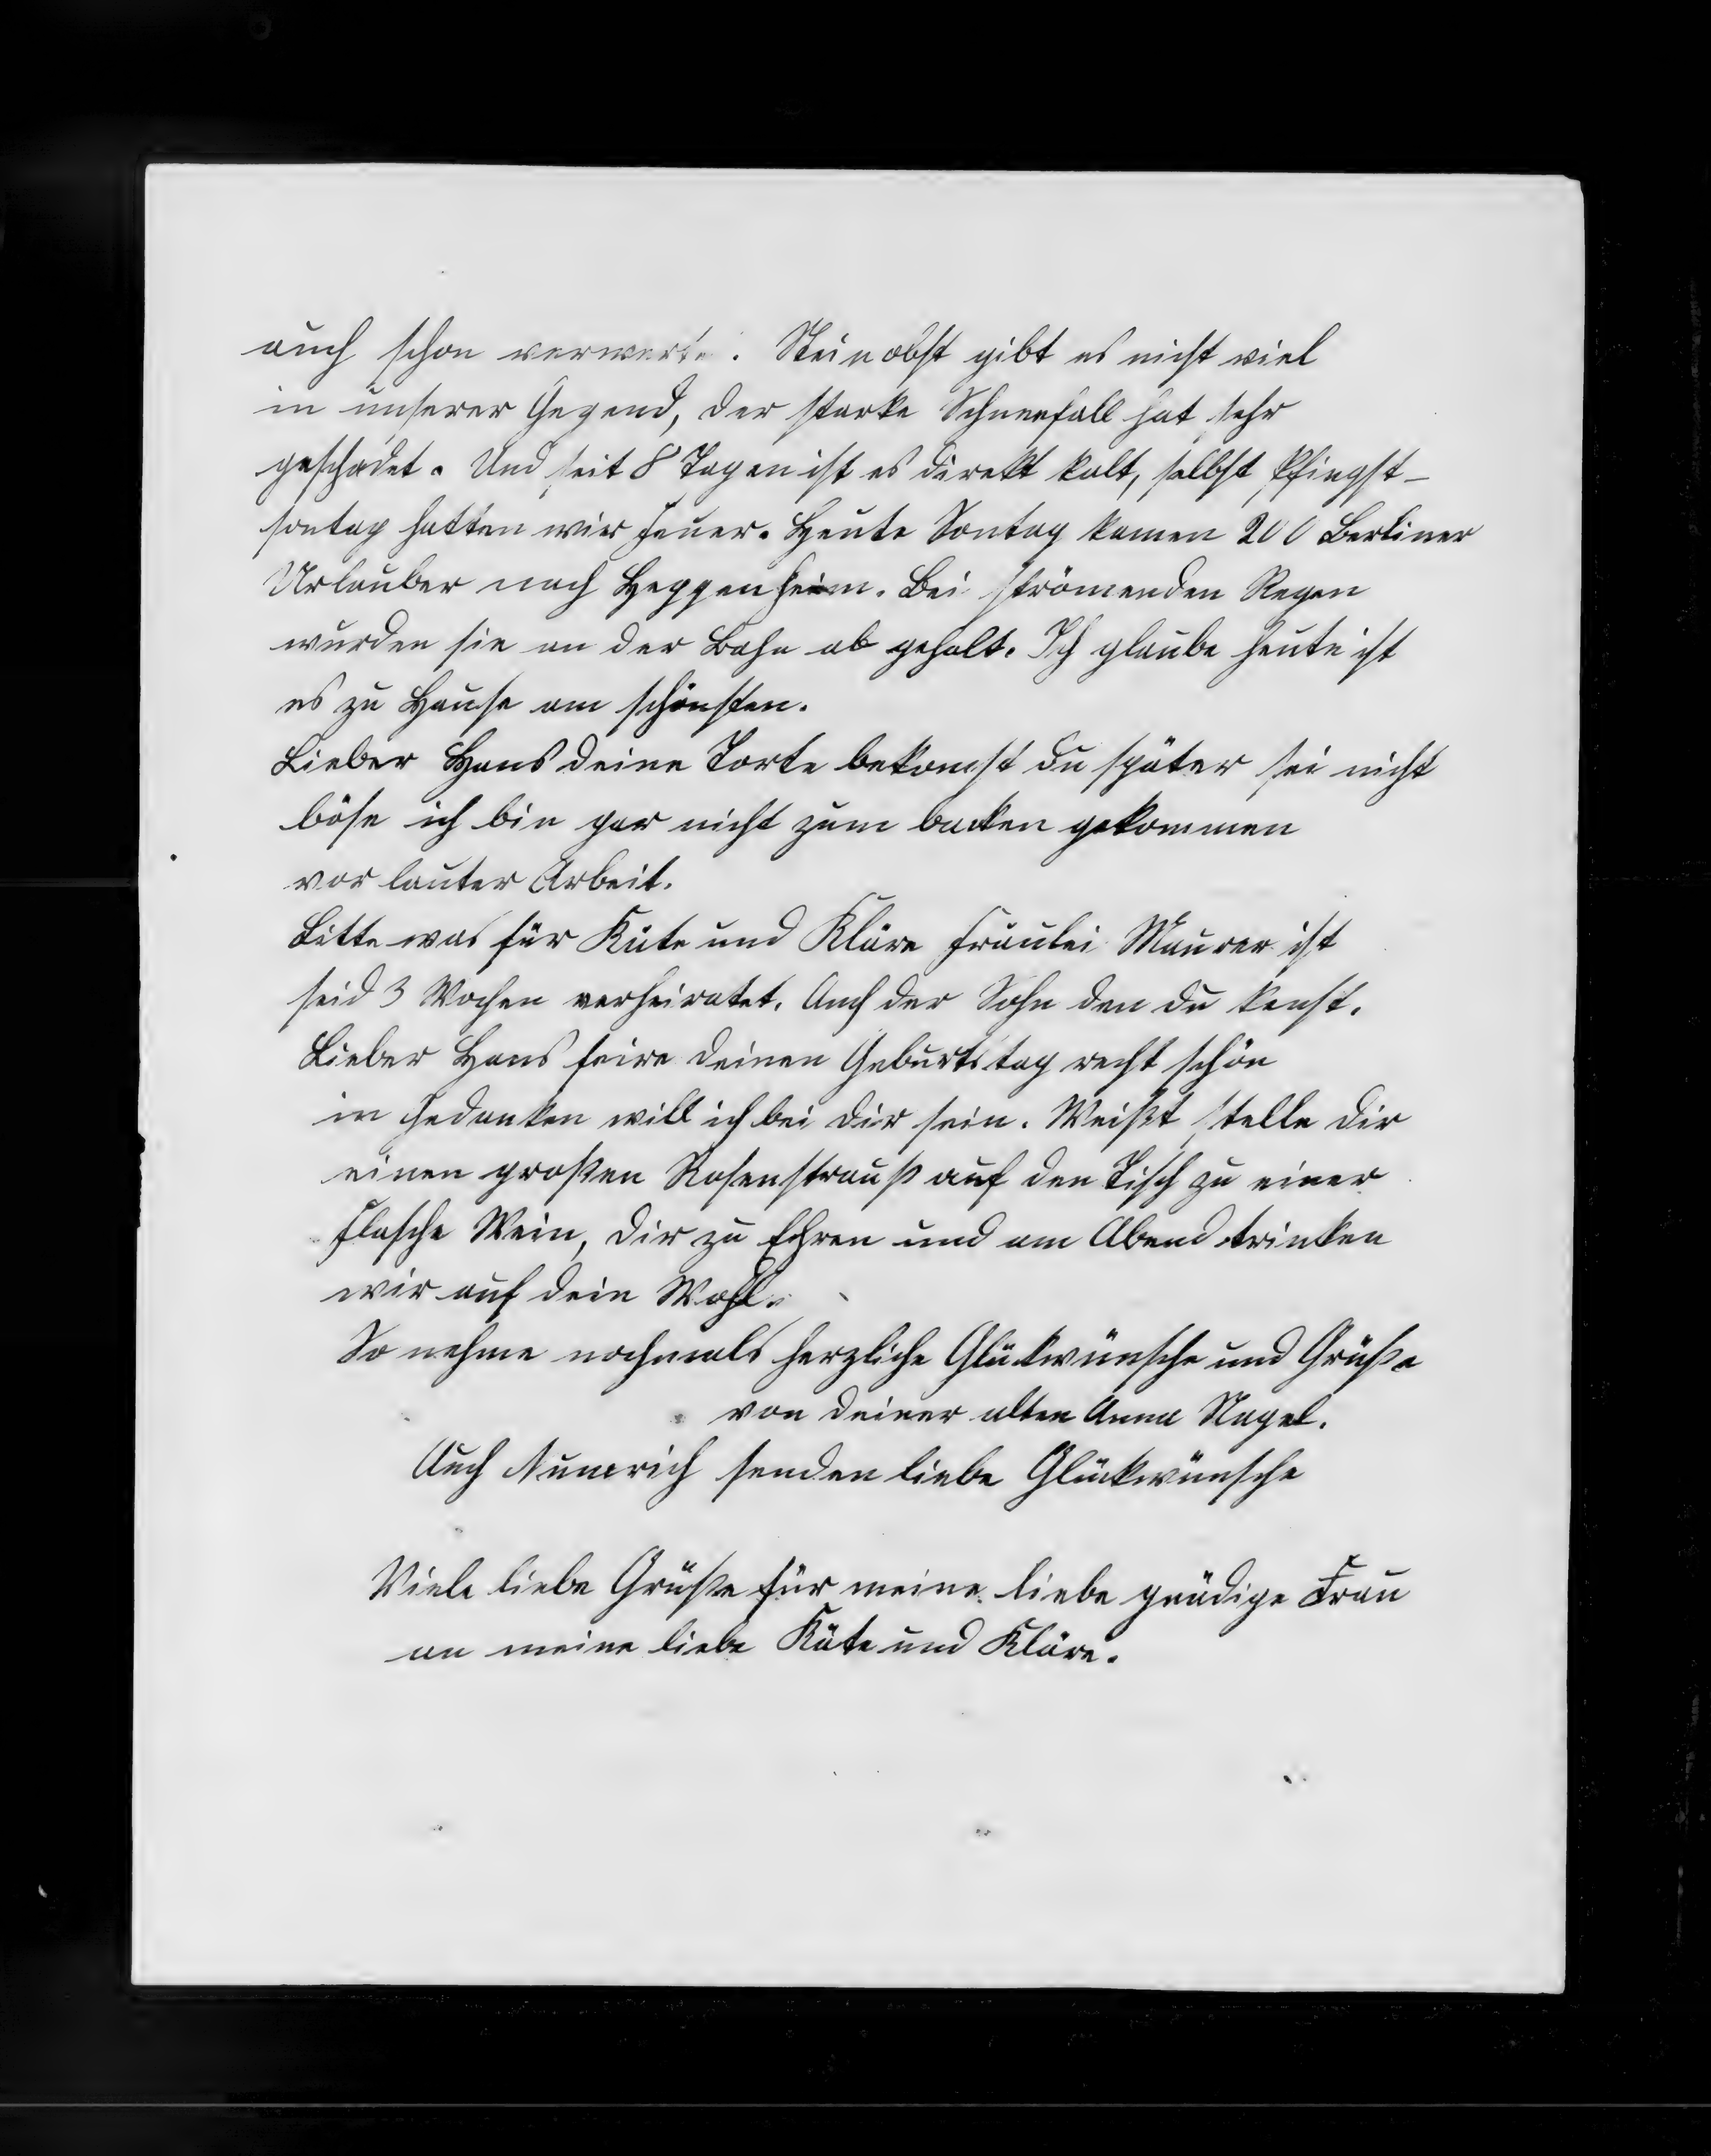 auch schon verwerte. Steinobst gibt es nicht viel
in unserer Gegend, der starke Schneefall hat sehr
geschadet. Und seit 8 Tagen ist es direkt kalt, selbst Pfingst-
sontag hatten wir Feuer. Heute Sontag kamen 200 Berliner
Urlauber nach Heppenheim. Bei strömenden Regen
wurden sie an der Bahn ab geholt. Ich glaube heute ist
es zu Hause am schönsten.
Lieber Hans deine Torte bekomst du später sei nicht
böse ich bin gar nicht zum backen gekommen
vor lauter Arbeit.
Bitte was für Käte und Kläre Fräulei Maurer ist
seid 3 Wochen verheiratet. Auch der Sohn den du kenst.
Lieber Hans feire deinen Geburtstag recht schön
in Gedanken will ich bei dir sein. Weißt stelle dir
einen großen Rosenstrauß auf den Tisch zu einer
Flasche Wein, dir zu Ehren und am Abend trinken
wir auf dein Wohl.
So nehme nochmals herzliche Glückwünsche und Grüße
von deiner alten Anna Nagel.
Auch senden liebe Glückwünsche
Viele liebe Grüße für meine liebe gnädige Frau
an meine liebe Käte und Kläre.